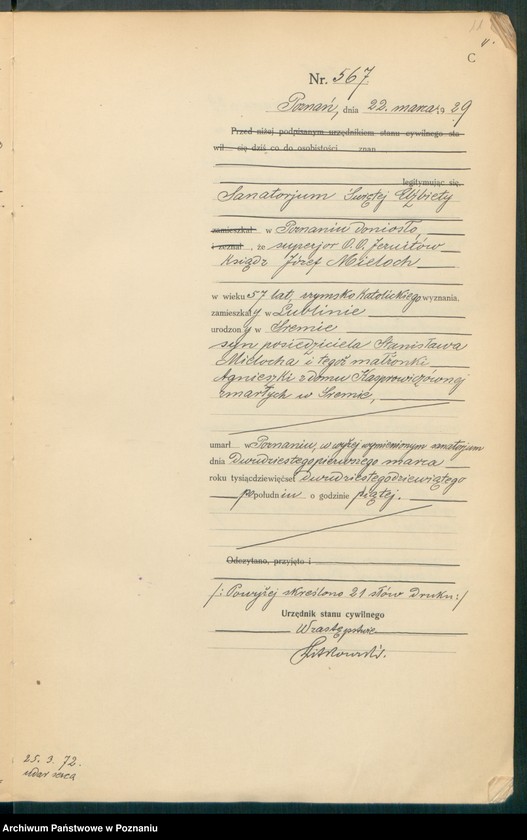 11.
C
Nr. 567
Poznań, dnia 22. marca 19 29
Przed niżej podpisanym urzędnikiem stanu cywilnego sta-
wił się dziś co do osobistości znan
legitymując się,
Sanatorjum Świętej Elżbiety
zamieszkał w Poznaniu doniosło,
i zeznał, że superjor O.O. Jezuitów
ksiądz Józef Mieloch
w wieku 57 lat, rzymsko katolickiego wyznania,
zamieszkały w Lublinie
urodzony w Śremie
syn posiedziciela Stanisława
Mielocha i tegoż małżonki
Agnieszki z domu Kasprowiczównej
zmarłych w Śremie,
umarł w Poznaniu, w wyżej wymienionym sanatorjum
dnia dwudziestego pierwszego marca
roku tysiącdziewięćset dwudziestego dziewiątego
po południu o godzinie piątej.
Odczytano, przyjęto i
/: Powyżej skreślono 21 słów druku :/
Urzędnik stanu cywilnego
W zastępstwie
25. 3. 72.
udar serca
Archiwum Państwowe w Poznaniu